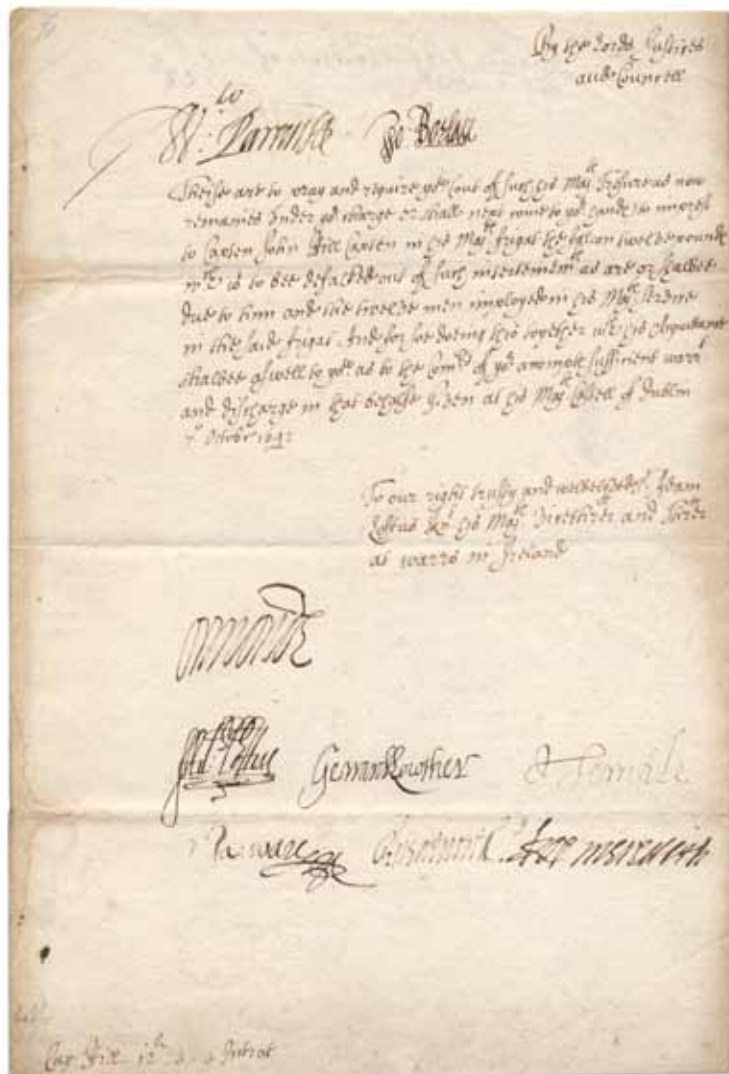 By the Lords Justices
and Councell
W: Parsons Jo: Borlase
Theise are to pray and require you out of such his Ma:ts Treasure as now
remaines under yo:r charge or shall next come to yo:r hands to imprest
to Capten John Hill Capten in his Ma:ts frigat the twelve pounds
w:ch is to bee defalked out of such intertainem:ts as are or shalbee
due to him and the twelve men imployed in his Ma:ts service
in the said frigat. And for soe doeing this together w:th his acquittance
shalbee aswell to you as to the Com:rs of yo:r accompts sufficient warr:t
and discharge in that behalfe Given at his Ma:ts Castell of Dublin
7:o October 1642
To our right trusty and welbeloved S:r Adam
Loftus Kn:t his Ma:ts Vicetreasurer and Trer
at warrs in Ireland
Ormonde
Ad: Loftus Gerrard Lowther J Temple
Ja: Ware
Cap: Hill 12:li